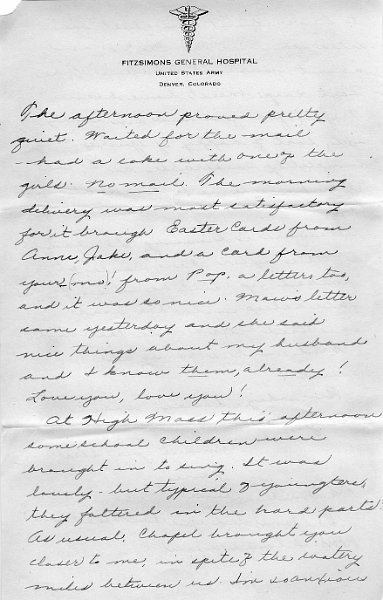 FITZSIMONS GENERAL HOSPITAL
UNITED STATES ARMY
DENVER, COLORADO
The afternoon proved pretty
quiet. Waited for the mail
- had a coke with one of the
girls. No mail. The morning
delivery was most satisfactory
for it brough Easter Cards from
Anne, Jake, and a card from
your (ma)! from Pop. a letter too,
and it was so nice. Maw's letter
came yesterday and she said
nice things about my husband
and I know them, already!
Love you, love you!
At High Mass this afternoon
some school children were
brought in to sing. It was
lovely - but typical of youngsters,
they faltered in the hard parts.
As usual, Chapel brought you
closer to me, in spite of the watery
miles between us. I'm so